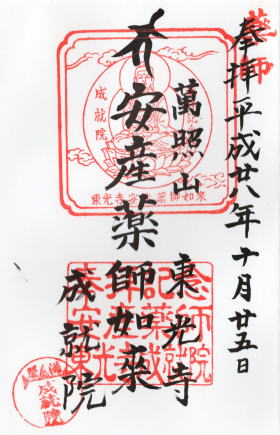 薬師
奉拝平成廿八年十月廿五日
萬照山
東光寺
安産薬師如来
成就院
成就院
東光寺安産薬師如来
成就院